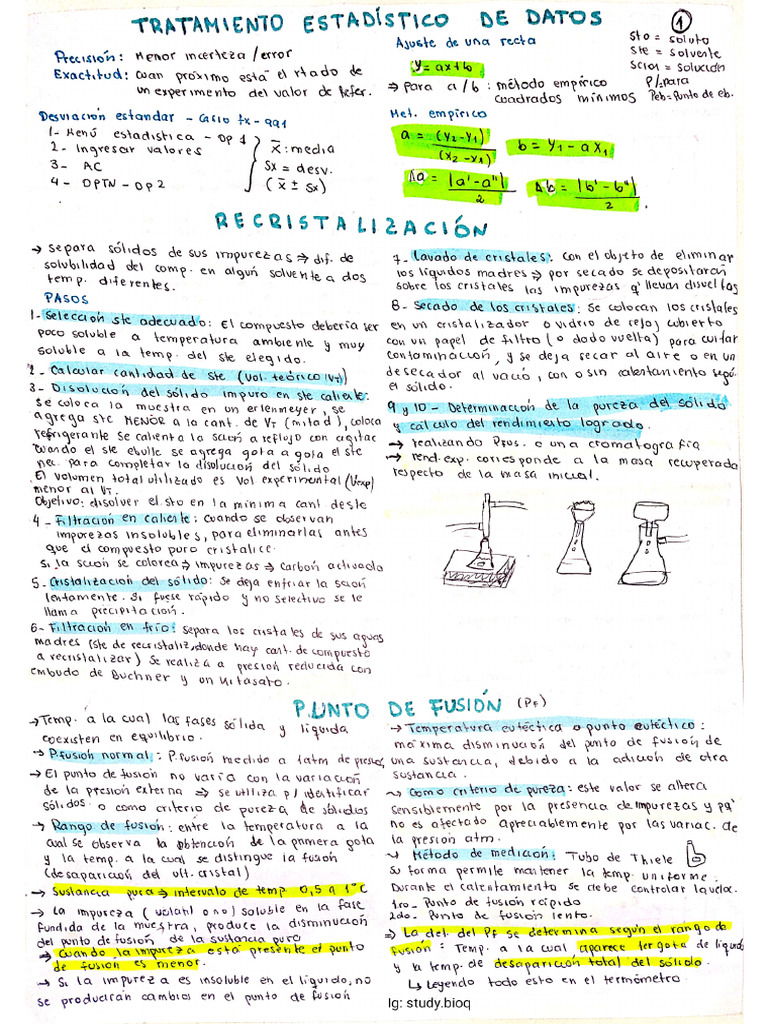 TRATAMIENTO ESTADÍSTICO DE DATOS
1
Precisión: Menor incerteza/error
Exactitud: cuan próximo está el rtado de
un experimento del valor de refer.
Desviación estandar - Casio fx-991
1- Menú estadistica - OP 1
2- Ingresar valores
3- AC
4- OPTN - OP2
x̄: media
Sx = desv.
(x̄ ± Sx)
Ajuste de una recta
y = ax+b
⇒ para a/b: método empírico
cuadrados mínimos
Sto = soluto
Ste = solvente
Scion = solución
P/=para
Peb=Punto de eb.
Met. empírico
a = (y2-y1)
(x2-x1)
b = y1 - ax1
Δa = |a'-a"|
2
Δb = |b'-b"|
2
RECRISTALIZACIÓN
→ separa sólidos de sus impurezas ⇒ dif. de
solubilidad del comp. en algún solvente a dos
temp. diferentes.
PASOS
1- Selección ste adecuado: El compuesto debería ser
poco soluble a temperatura ambiente y muy
soluble a la temp. del ste elegido.
2- Calcular cantidad de ste (Vol. teórico VT)
3- Disolución del sólido impuro en ste caliente:
se coloca la muestra en un erlenmeyer, se
agrega ste MENOR a la cant. de VT (mitad), coloca
refrigerante se calienta la scion a reflujo con agitac
cuando el ste ebulle se agrega gota a gota el ste
nec. para completar la disolución del sólido
El volumen total utilizado es Vol experimental (Vexp)
menor al VT.
Objetivo: disolver el sto en la mínima cant deste
4- Filtración en caliente: cuando se observan
impurezas insolubles, para eliminarlas antes
que el compuesto puro cristalice.
Si la scion se colorea ⇒ impurezas ⇒ carbón activado
5- Cristalización del sólido: se deja enfriar la scion
lentamente. Si fuese rápido y no selectivo se le
llama precipitación.
6- Filtración en frío: separa los cristales de sus aguas
madres (ste de recristaliz, donde hay cant. de compuesto
a recristalizar) Se realiza a presion reducida con
embudo de Buchner y un Kitasato.
7- Lavado de cristales: con el objeto de eliminar
los líquidos madres ⇒ por secado se depositarán
sobre los cristales las impurezas q' llevan disueltas
8- Secado de los cristales: Se colocan los cristales
en un cristalizador o vidrio de reloj cubierto
con un papel de filtro (o dado vuelta) para evitar
contaminación, y se deja secar al aire o en un
desecador al vacío, con o sin calentamiento según
el sólido.
9 y 10- Determinación de la pureza del sólido
y cálculo del rendimiento logrado.
→ realizando Pfus. o una cromatografía
→ rend.exp. corresponde a la masa recuperada
respecto de la masa inicial.
PUNTO DE FUSIÓN (PF)
→ Temp. a la cual las fases sólida y líquida
coexisten en equilibrio.
→ P.fusión normal: P.fusión medido a 1atm de presion
→ El punto de fusión no varía con la variación
de la presión externa ⇒ se utiliza p/ identificar
sólidos o como criterio de pureza de sólidos
→ Rango de fusión: entre la temperatura a la
cual se observa la obtención de la primera gota
y la temp. a la cual se distingue la fusión
(desaparición del ult. cristal)
→ Sustancia pura ⇒ intervalo de temp 0,5 a 1°C
→ La impureza (volátil o no) soluble en la fase
fundida de la muestra, produce la disminución
del punto de fusión de la sustancia pura
→ Cuando la impureza está presente el punto
de fusión es menor.
→ Si la impureza es insoluble en el líquido, no
se producirán cambios en el punto de fusión
→ Temperatura eutéctica o punto eutéctico:
máxima disminución del punto de fusión de
una sustancia, debido a la adición de otra
sustancia.
→ Como criterio de pureza: este valor se altera
sensiblemente por la presencia de impurezas y pq'
no es afectado apreciablemente por las variac. de
la presión atm.
→ Método de medición: Tubo de Thiele
su forma permite mantener la temp. uniforme.
Durante el calentamiento se debe controlar la velox.
1ro- Punto de fusión rápido
2do- Punto de fusión lento.
⇒ La det. del Pf se determina según el rango de
fusión: Temp. a la cual aparece 1er gota de líquido
y la temp. de desaparición total del sólido.
↳ Leyendo todo esto en el termómetro
Ig: study.bioq